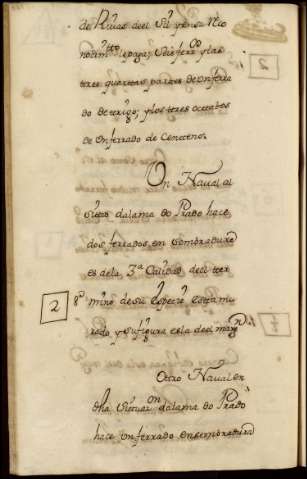 de Rivas deel Sil y en su Reco
nocim.to le paga, Seis ferr.os y las
tres quartas partes de un ferra
do de trigo, y los tres octabos
de Un ferrado de Centeno.
Un Naual al
Sitio dalama do Prado hace
dos ferrados en Sembradura
es de la 3.a Calidad deel ter
2
mino de su Especie Esta mu
rado y su figura es la deel marg.n
Otro Naual en
dha Situaz.on dalama do Prado
hace un ferrado en sembradura